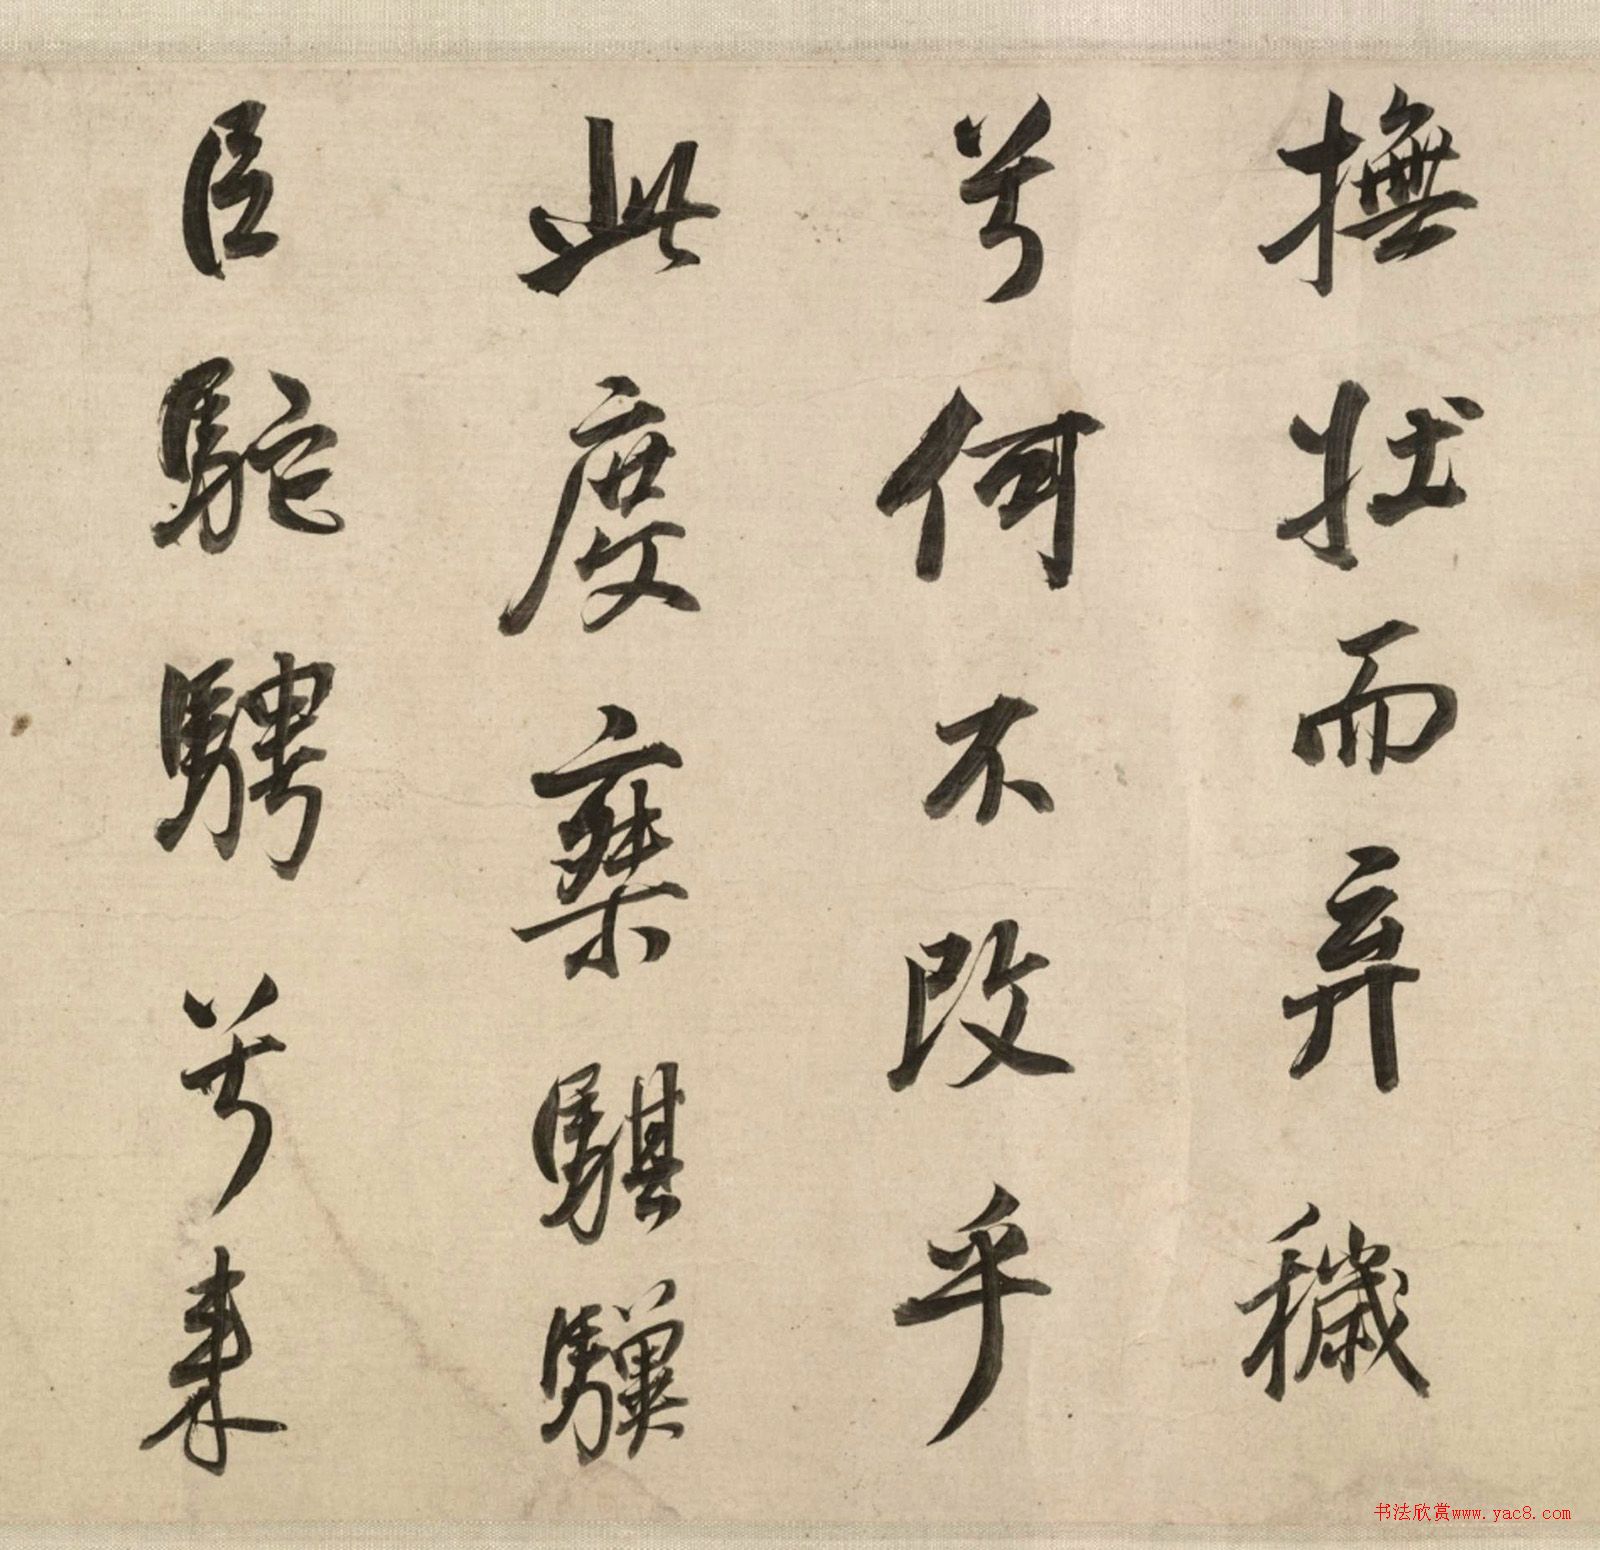 撫壯而弃穢
兮何不改乎
此度椉騏驥
㠯駝騁兮来
书法欣赏www.yac8.com